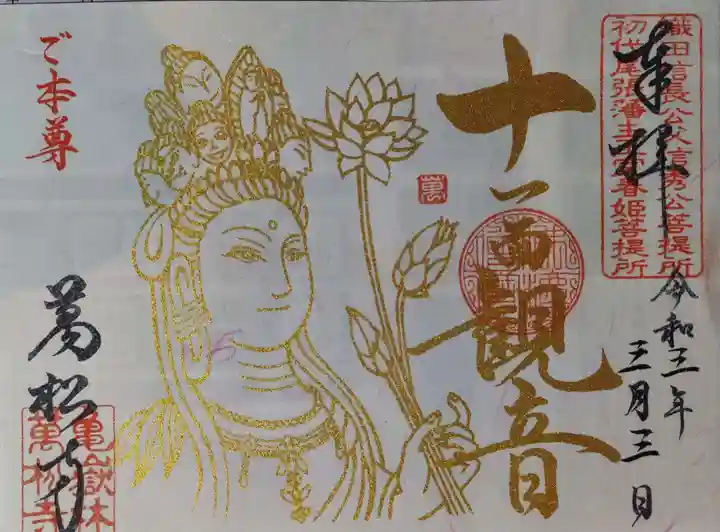 奉拝
織田信長公父信秀公菩提所
初代尾張藩主正室春姫菩提所
令和三年
三月三日
十一面観音
萬
ご本尊
萬松寺
亀嶽林
萬松寺